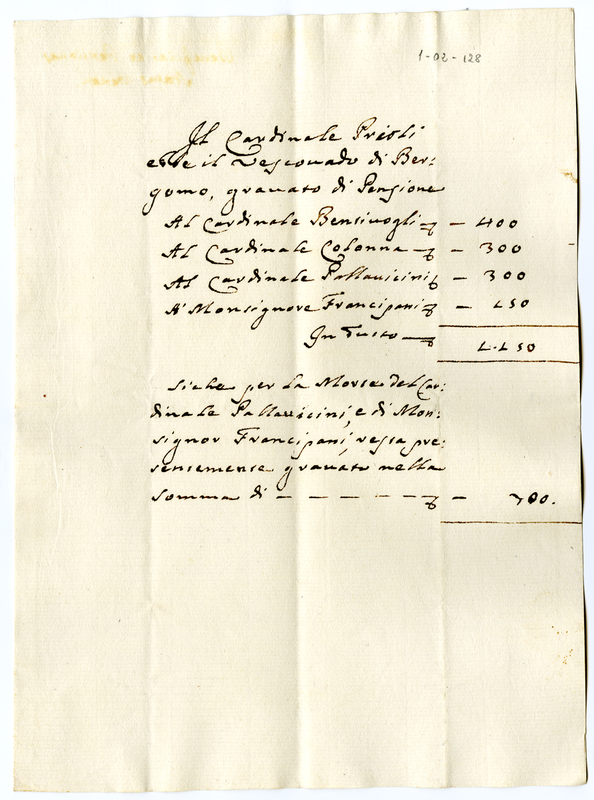 1-02-128
Il Cardinale Prioli
ebbe il Vescouado di Ber:
gomo, grauato di Pensione
Al Cardinale Bentiuogli — 400
Al Cardinale Colonna — 300
Al Cardinale Pallauicini — 300
A' Monsignore Francipani — 150
In tutto — 1.150
Siche per la Morte del Car:
dinale Pallauicini, e di Mon:
signor Francipani, resta pre:
sentemente grauato nella
somma di — — — — — — 700.